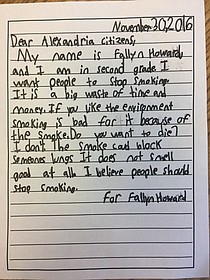 November30,2016
Dear Alexandria Citizens,
My name is Fallyn Howard,
and I am in second grade I
want People to Stop Smoking.
It is a big waste of time and
money. If you like the enviornment
smoking is bad for it because of
the smoke. Do you want to die?
I don't. The smoke coud block
someones lungs It does not smell
good at all. I believe people should
stop smoking.
For Fallyn Howard